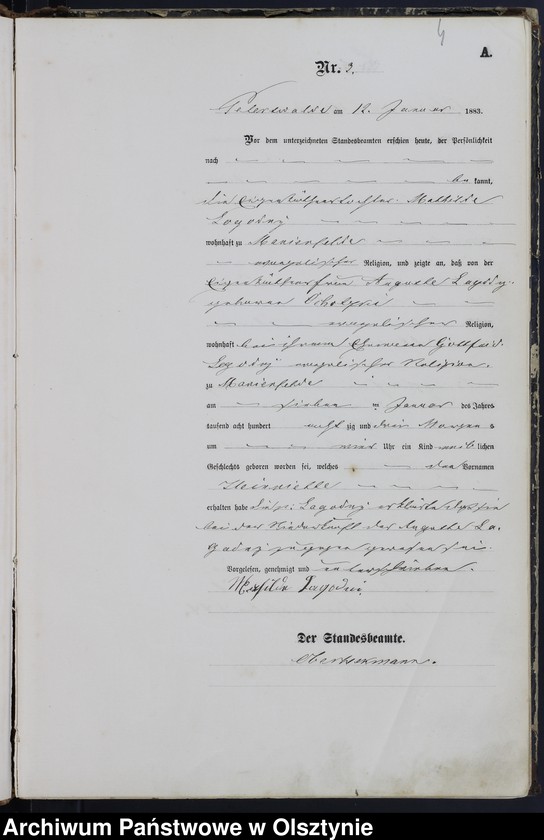 4
A.
Nr. 3.
Peterswalde am 12. Januar 1883.
Vor dem unterzeichneten Standesbeamten erschien heute, der Persönlichkeit
nach
be kannt,
die Eigenkäthnertochter Mathilde
Lagodny
wohnhaft zu Marienfelde
evangelischer Religion, und zeigte an, daß von der
Eigenkäthnerfrau Auguste Lagodny
geborene
evangelischer Religion,
wohnhaft bei ihrem Ehemann Gottfried
Lagodny evangelischer Religion,
zu Marienfelde
am sieben ten Januar des Jahres
tausend acht hundert acht zig und drei Morgens
um vier Uhr ein Kind weib lichen
Geschlechts geboren worden sei, welches den Vornamen
Henriette
erhalten habe. Die p. Lagodny erklärte daß sie
bei der Niederkunft der Auguste La-
godny zugegen gewesen sei.
Vorgelesen, genehmigt und unterschrieben.
Mathilde Lagodni
Der Standesbeamte.
Archiwum Państwowe w Olsztynie